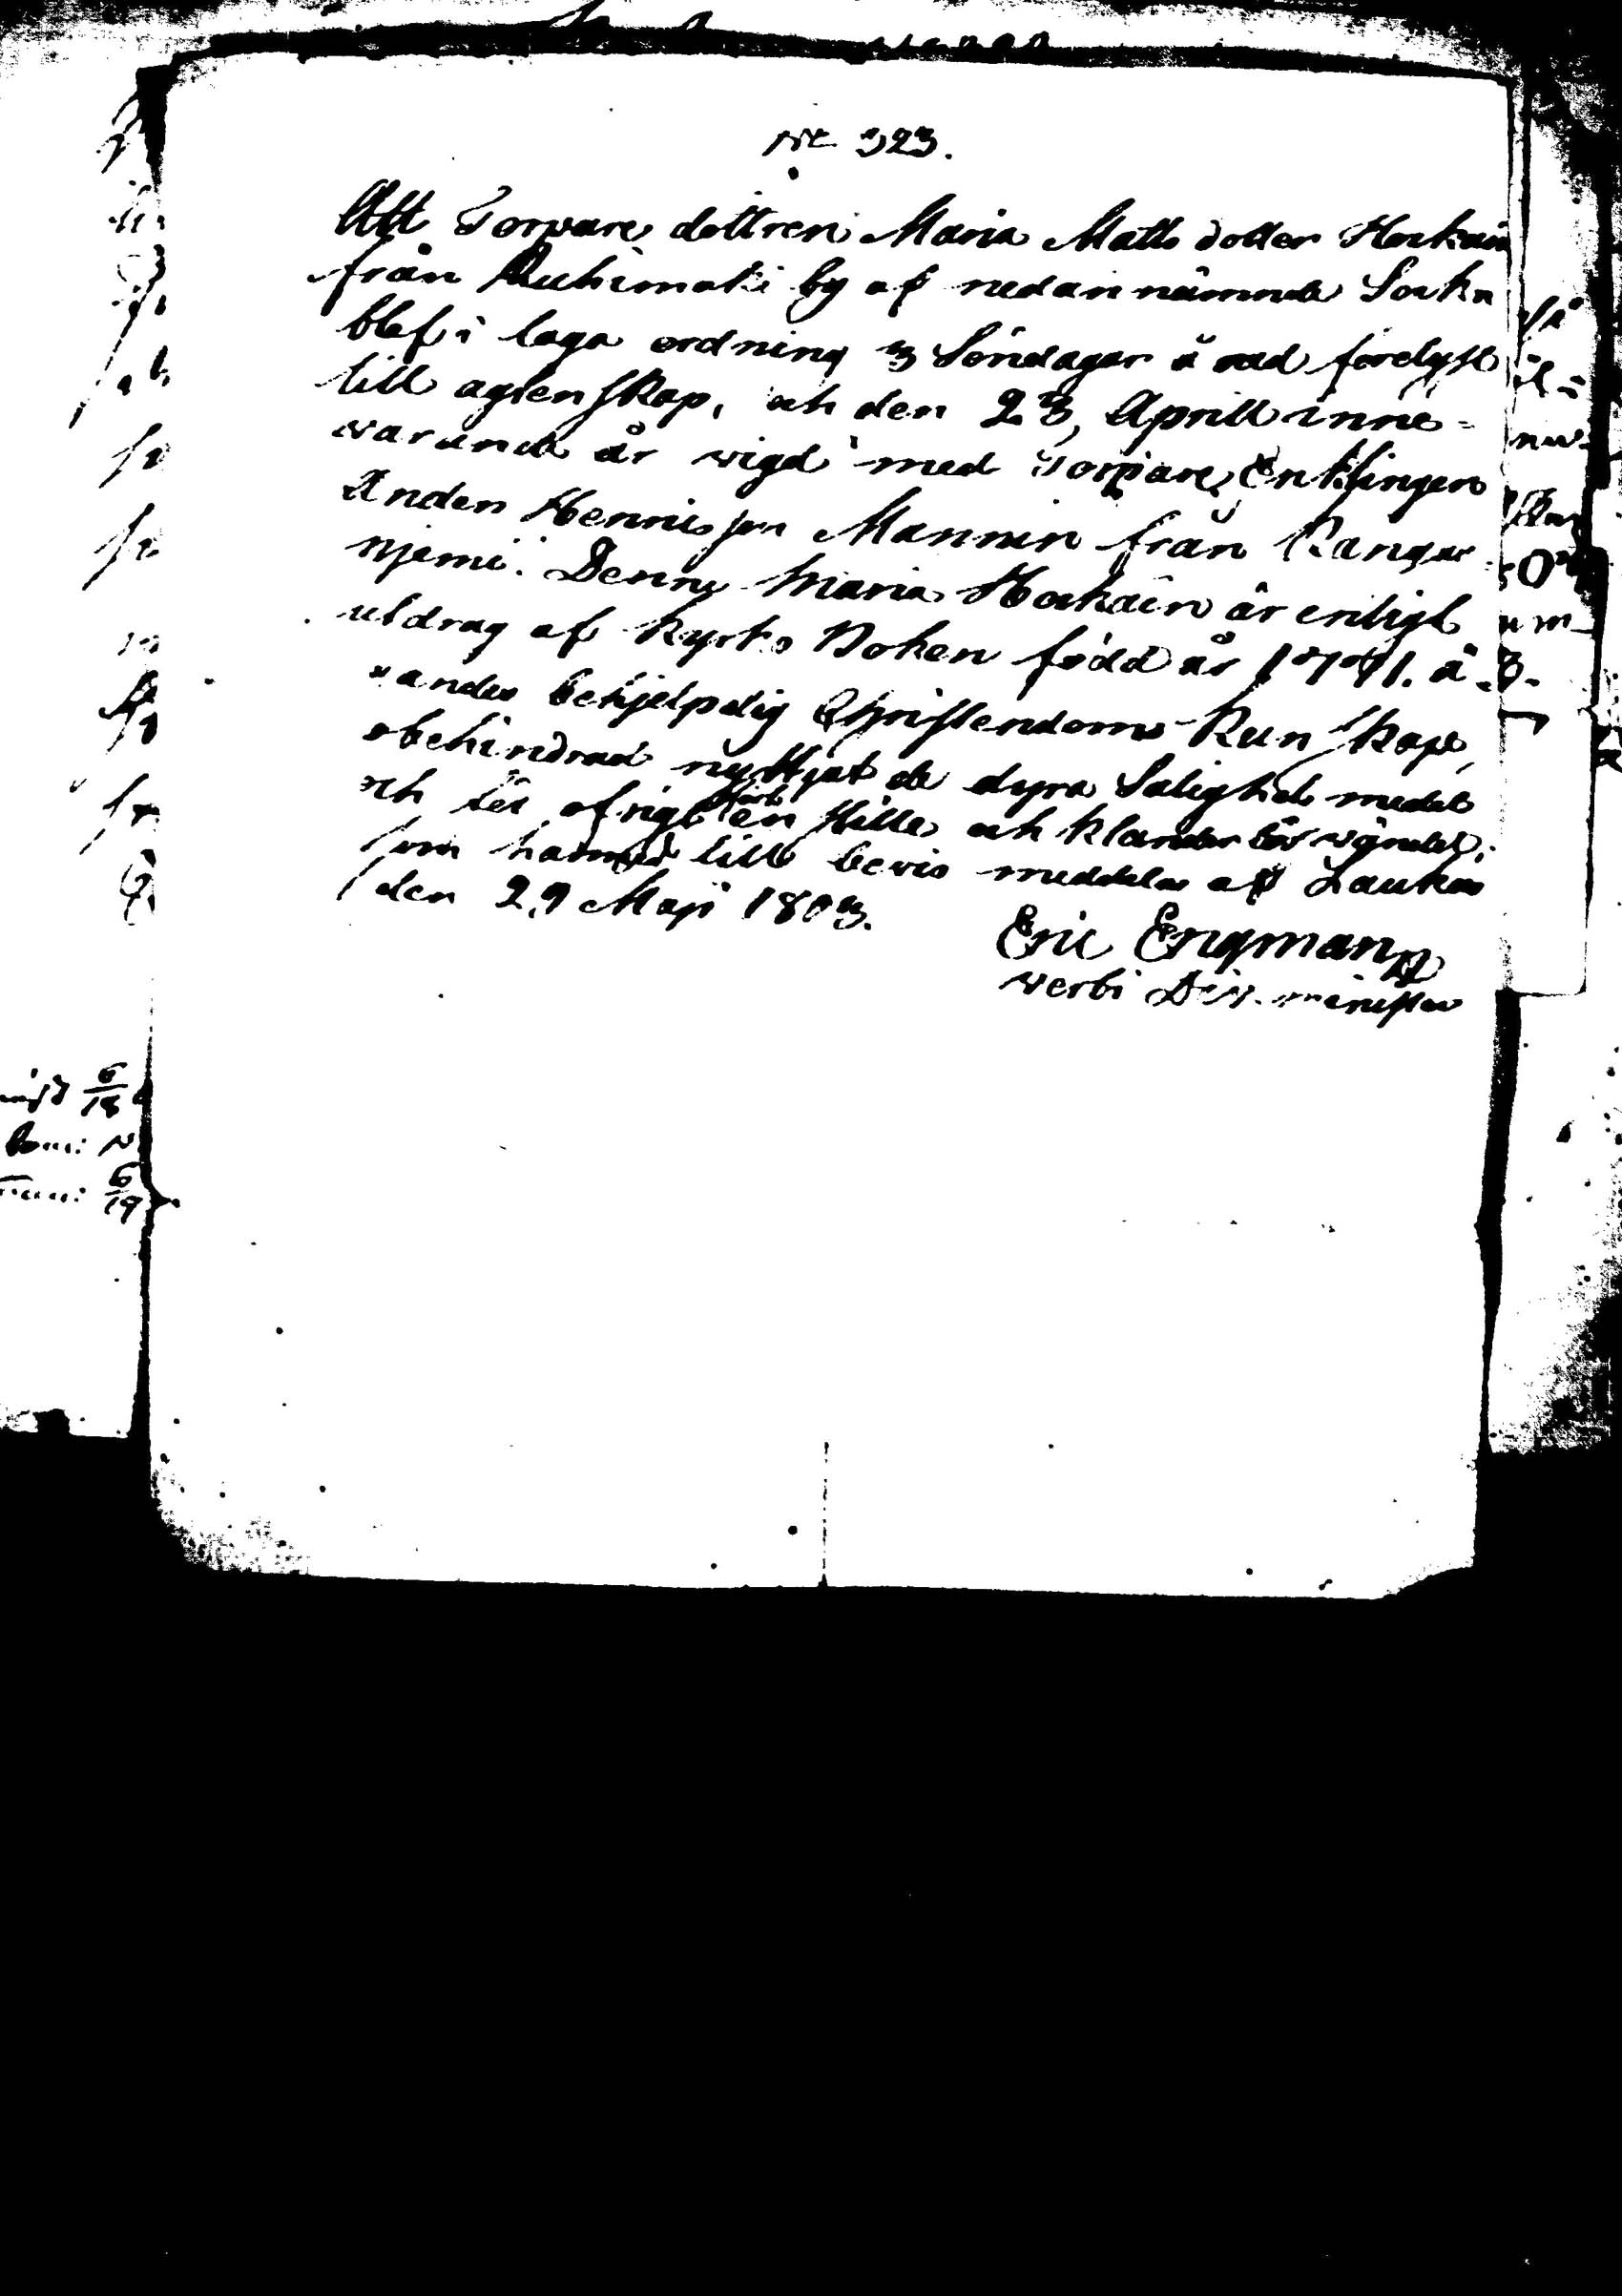 No 323.
Att Torpare dottren Maria Matts dotter Horkain
från Ruhimaki by af nedannämnde Sockn
blef i laga ordning 3 Söndagar å rad förelyst
till agtenskap, och den 23, Aprill inne-
warande år wigd med Torpare Enklingen
Anders Hennisson Mannin från Kangas
njemi. Denne Maria Horkain är enligt
utdrag af kyrko Boken född år 1771. ä
andes behjelpelig Christendoms-Kunskap,
obehindrad nyttjat de dyra Salighets medel
och för öfrigt fört en stille och klanderlös wandel;
som harmed till bevis meddelas af Laukas
den 29 Maji 1803.
Eric Engmann
verbi Div. minister